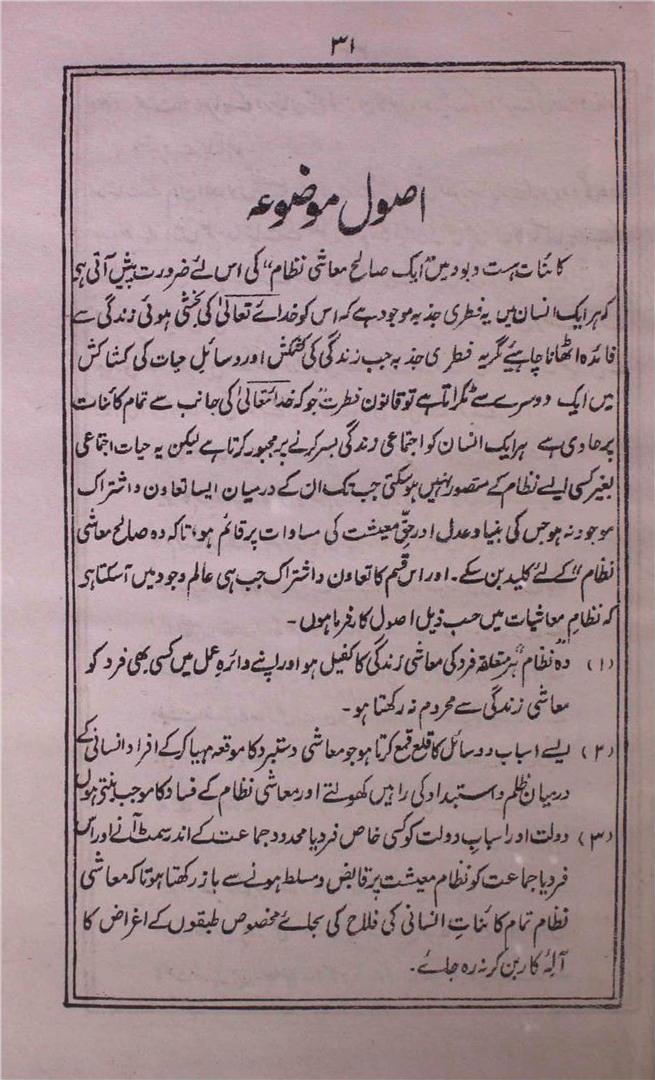 ۳۱
اصول موضوعہ
کائنات ہست و بود میں ”ایک صالح معاشی نظام“ کی اس لئے ضرورت پیش آتی ہی
کہ ہر ایک انسان میں یہ فطری جذبہ موجود ہے کہ اس کو خدائے تعالیٰ کی بخشی ہوئی زندگی سے
فائدہ اٹھانا چاہیئے مگر یہ فطری جذبہ جب زندگی کی کشمکش اور وسائل حیات کی کشاکش
میں ایک دوسرے سے ٹکراتا ہے تو قانون فطرت جو کہ خدائتعالیٰ کی جانب سے تمام کائنات
پر حاوی ہے ہر ایک انسان کو اجتماعی زندگی بسر کرنے پر مجبور کرتا ہے لیکن یہ حیات اجتماعی
بغیر کسی ایسے نظام کے متصور نہیں ہو سکتی جب تک ان کے درمیان ایسا تعاون و اشتراک
موجود نہ ہو جس کی بنیاد عدل اور حقِ معیشت کی مساوات پر قائم ہو، تاکہ وہ صالح معاشی
نظام“ کے لئے کلید بن سکے۔ اور اس قسم کا تعاون و اشتراک جب ہی عالم وجود میں آسکتا ہی
کہ نظامِ معاشیات میں حسب ذیل اصول کار فرما ہوں۔
(۱) وہ نظام ہر متعلقہ فرد کی معاشی زندگی کا کفیل ہو اور اپنے دائرہ عمل میں کسی بھی فرد کو
معاشی زندگی سے محروم نہ رکھتا ہو۔
(۲) ایسے اسباب و وسائل کا قلع قمع کرتا ہو جو معاشی دستبرد کا موقعہ مہیا کر کے افراد انسانی کے
درمیان ظلم و استبداد کی راہیں کھولتے اور معاشی نظام کے فساد کا موجب بنتی ہوں
(۳) دولت اور اسباب دولت کو کسی خاص فرد یا محدود جماعت کے اندر سمٹ آنے اور اس
فرد یا جماعت کو نظام معیشت پر قابض و مسلط ہونے سے باز رکھتا ہو تاکہ معاشی
نظام تمام کائناتِ انسانی کی فلاح کی بجائے مخصوص طبقوں کے اغراض کا
آلۂ کار بن کر نہ رہ جائے۔